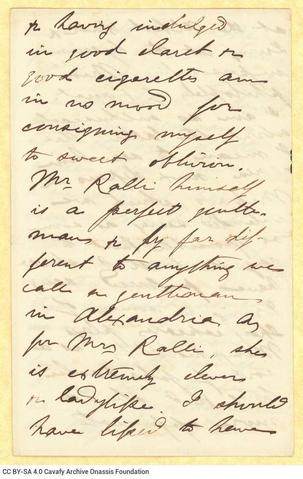 & having indulged
in good claret &
good cigarettes am
in no mood for
consigning myself
to sweet oblivion.
Mr Ralli himself
is a perfect gentle-
man & by far dif-
ferent to anything we
call a gentleman
in Alexandria. As
for Mrs Ralli, she
is extremely clever
& ladylike. I should
have liked to have
CC BY-SA 4.0 Cavafy Archive Onassis Foundation